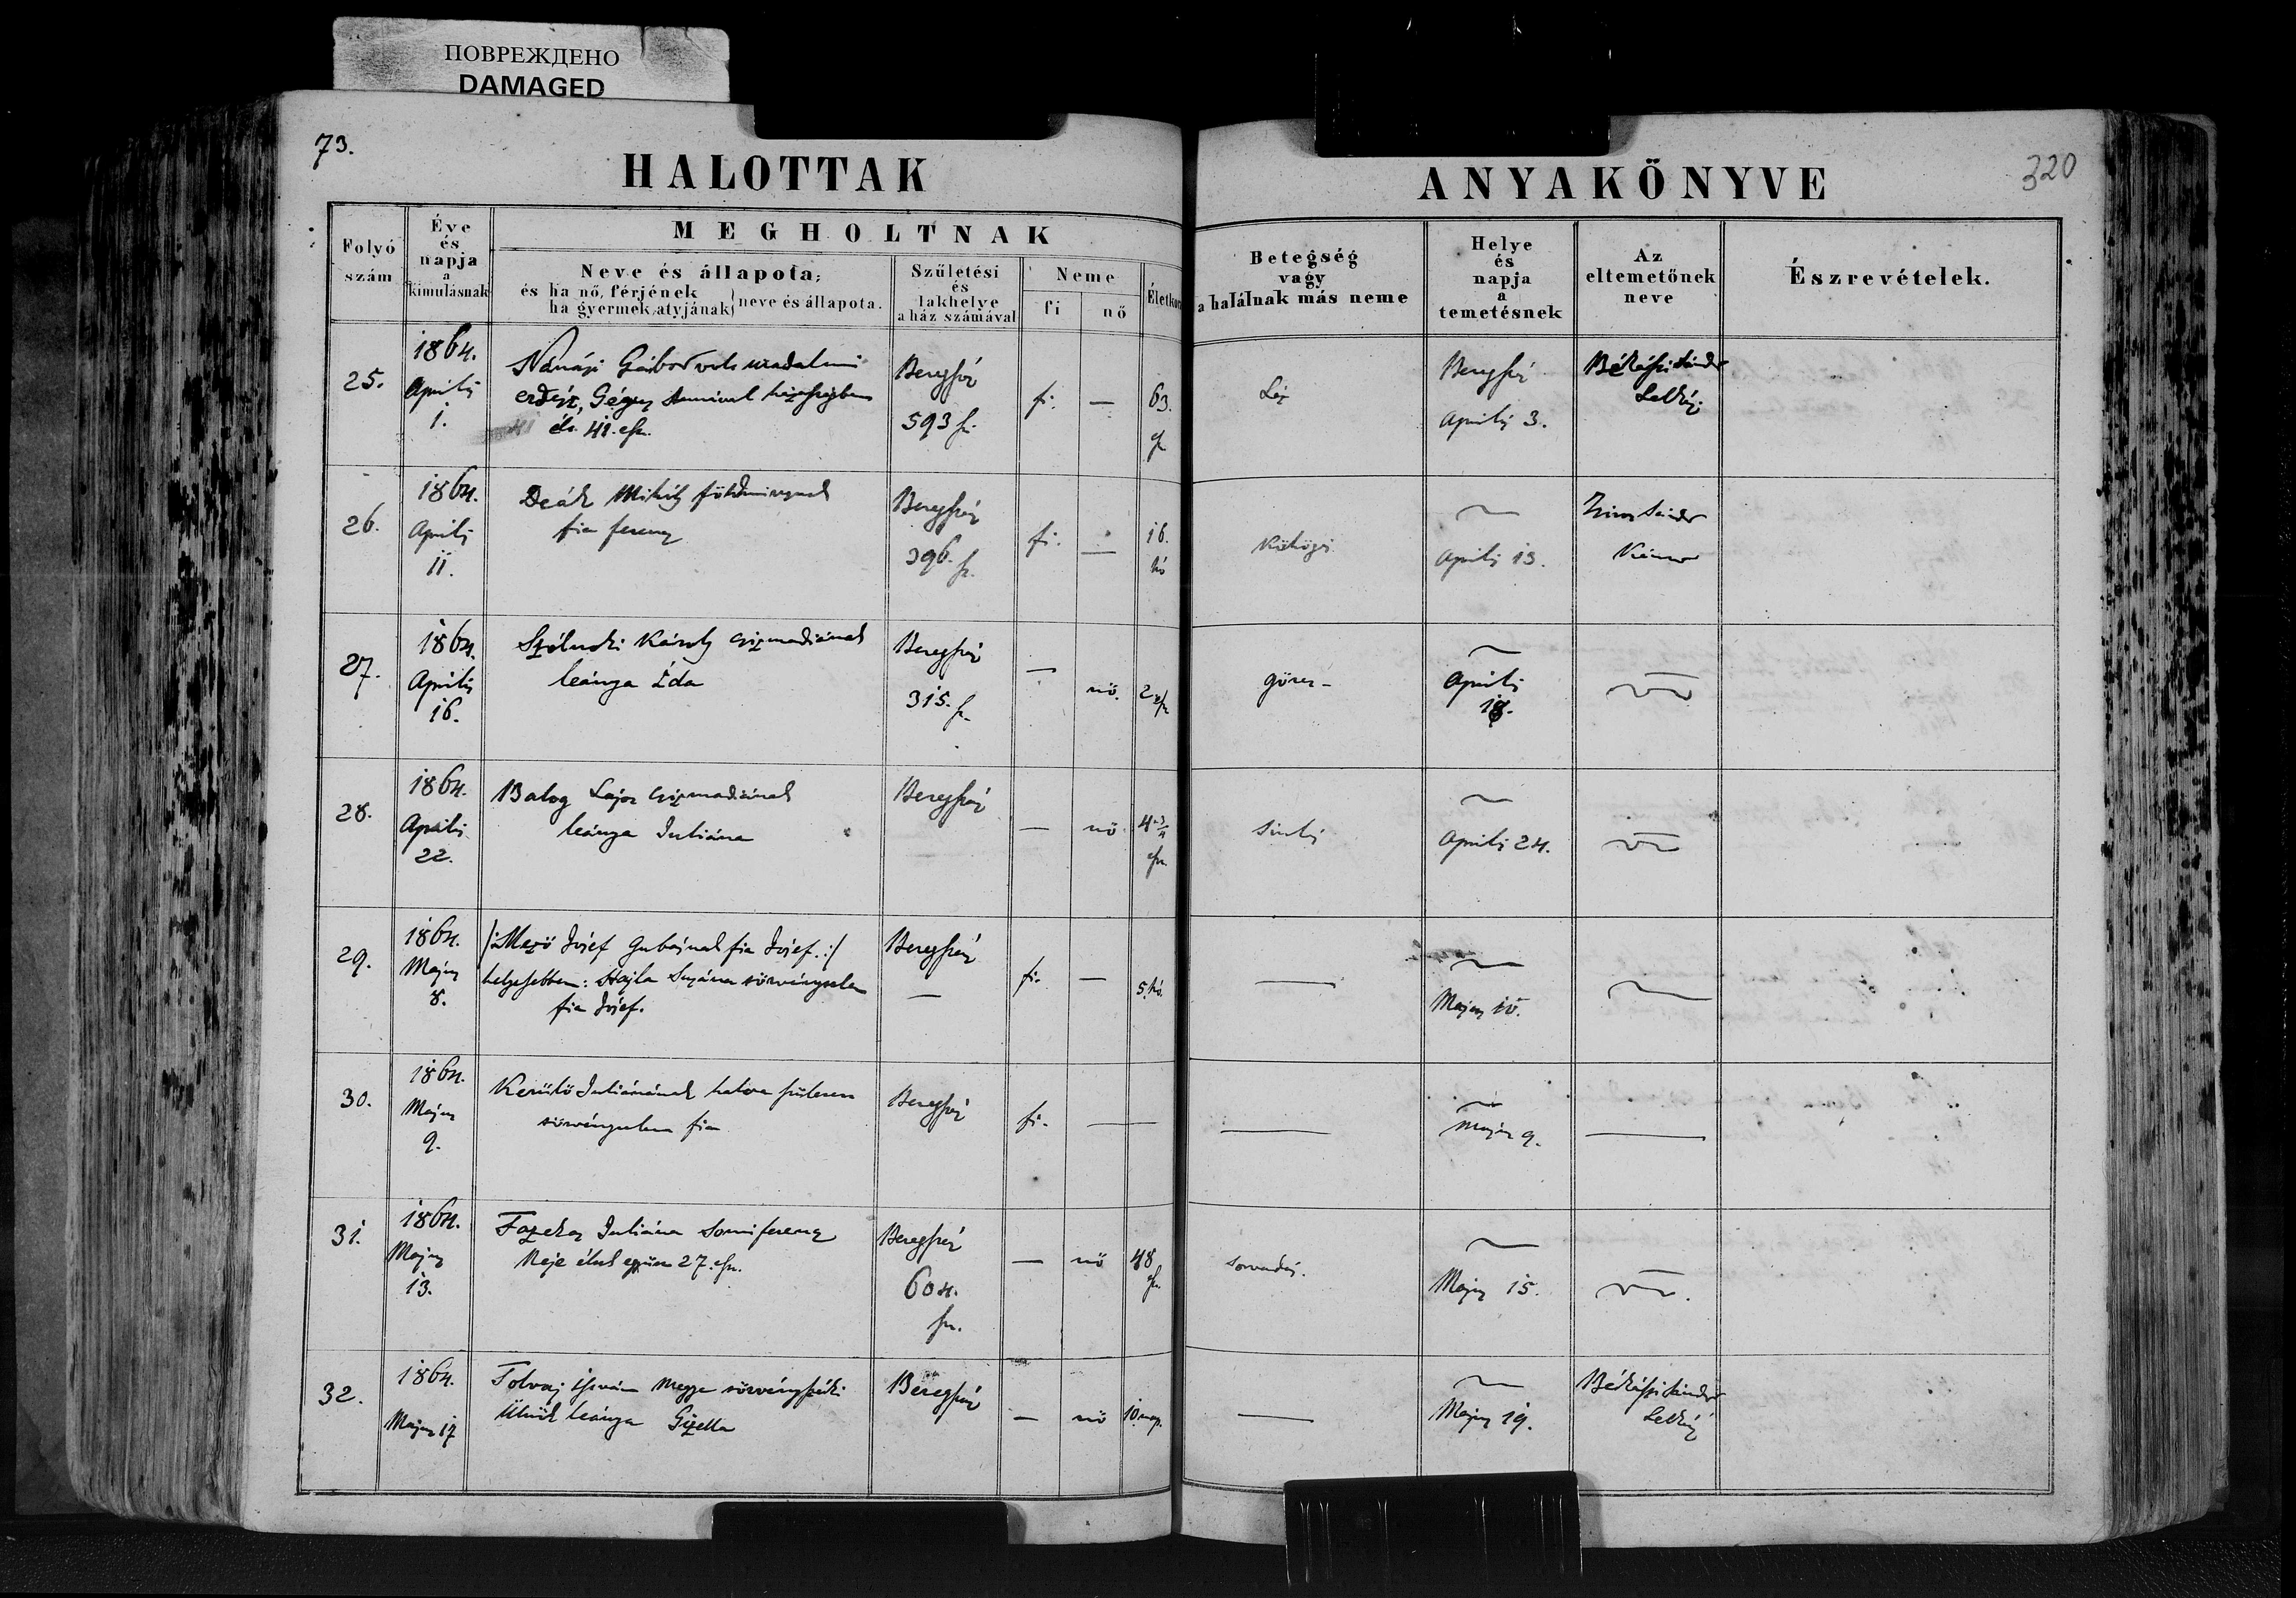 ПОВРЕЖДЕНО
DAMAGED
73.
HALOTTAK
ANYAKÖNYVE
320
Folyó szám
Éve és napja a kimulásnak
MEGHOLTNAK
Neve és állapota;
és ha nő, férjének
ha gyermek, atyjának } neve és állapota.
Születési és lakhelye a ház számával
Neme
fi
nő
Életkora
Betegség vagy a halálnak más neme
Helye és napja a temetésnek
Az eltemetőnek neve
Észrevételek.
25.
1864. Április 1.
Nánási Gábor volt uradalmi
erdész, házasságban
élt 41. esz.
Beregszász
593 sz.
fi. —
63.
Láz
Beregszász
Április 3.
Békássi Sándor
Lelkész
26.
1864. Április 11.
Deák Mihály földmivesnek
fia Ferencz
Beregszász
396. sz.
fi. —
16. hó
Köhögés
Április 13.
Sándor
27.
1864. Április 16.
Károly csizmadiának
leánya Ida
Beregszász
315. sz.
— nő.
2 esz
görcs
Április 18.
28.
1864. Április 22.
Balog Lajos csizmadiának
leánya Juliána
Beregszász
— nő
4 3/4 esz.
Április 24.
29.
1864. Május 8.
/:Mező Josef Gubásnak fia Josef.:/
helyesebben: Hajla Suzána törvénytelen
fia Josef.
Beregszász
—
fi. —
5. hó.
—
Május 10.
30.
1864. Május 9.
Kerülő Juliánának halva született
törvénytelen fia
Beregszász
fi. —
—
Május 9.
—
31.
1864. Május 13.
Fazekas Juliána Somi Ferencz
Neje éltek együtt 27. esz.
Beregszász
604. sz.
— nő
48 esz.
sorvadás.
Május 15.
32.
1864. Május 17
Tolvaj István Megye törvényszéki
Ülnök leánya Gizella
Beregszász
— nő
10. nap.
—
Május 19.
Békássi Sándor
Lelkész